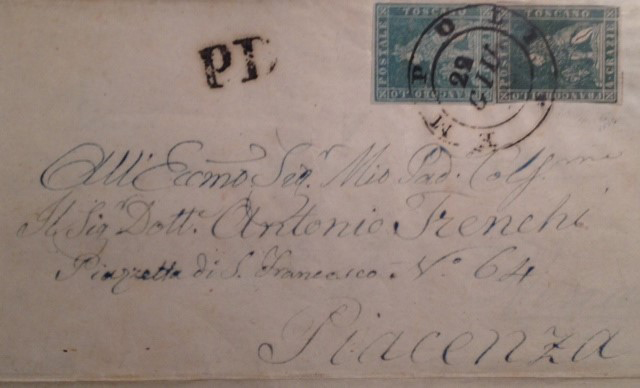 POSTALE TOSCANO FRANCOBOLLO
POSTALE TOSCANO FRANCOBOLLO
P.D.
29
GIU
All' Eccmo Sigr Mio Pad. Col.
Il Sigr Dotte Antonio Frenchi
Piazzetta di S. Francesco No 64
Piacenza